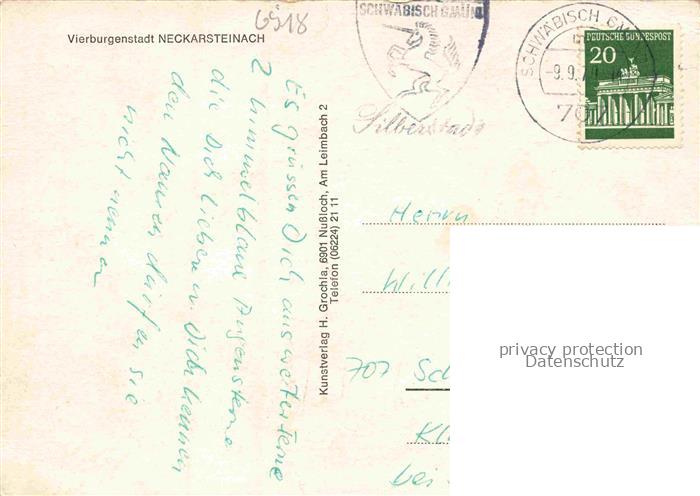 6918
Vierburgenstadt NECKARSTEINACH
Es grüssen Dich aus weiter Ferne
2 himmelblaue Augensterne
die Dich lieben u. Dich kennen
den Namen dürfen sie
nicht nennen
Kunstverlag H. Grochla, 6901 Nußloch, Am Leimbach 2
Telefon (06224) 21 11
SCHWÄBISCH GMÜND
Silberstadt
SCHWÄBISCH
-9.9.7
707
DEUTSCHE BUNDESPOST
20
Herrn
Willi
707 Sch
Kl
bei
privacy protection
Datenschutz